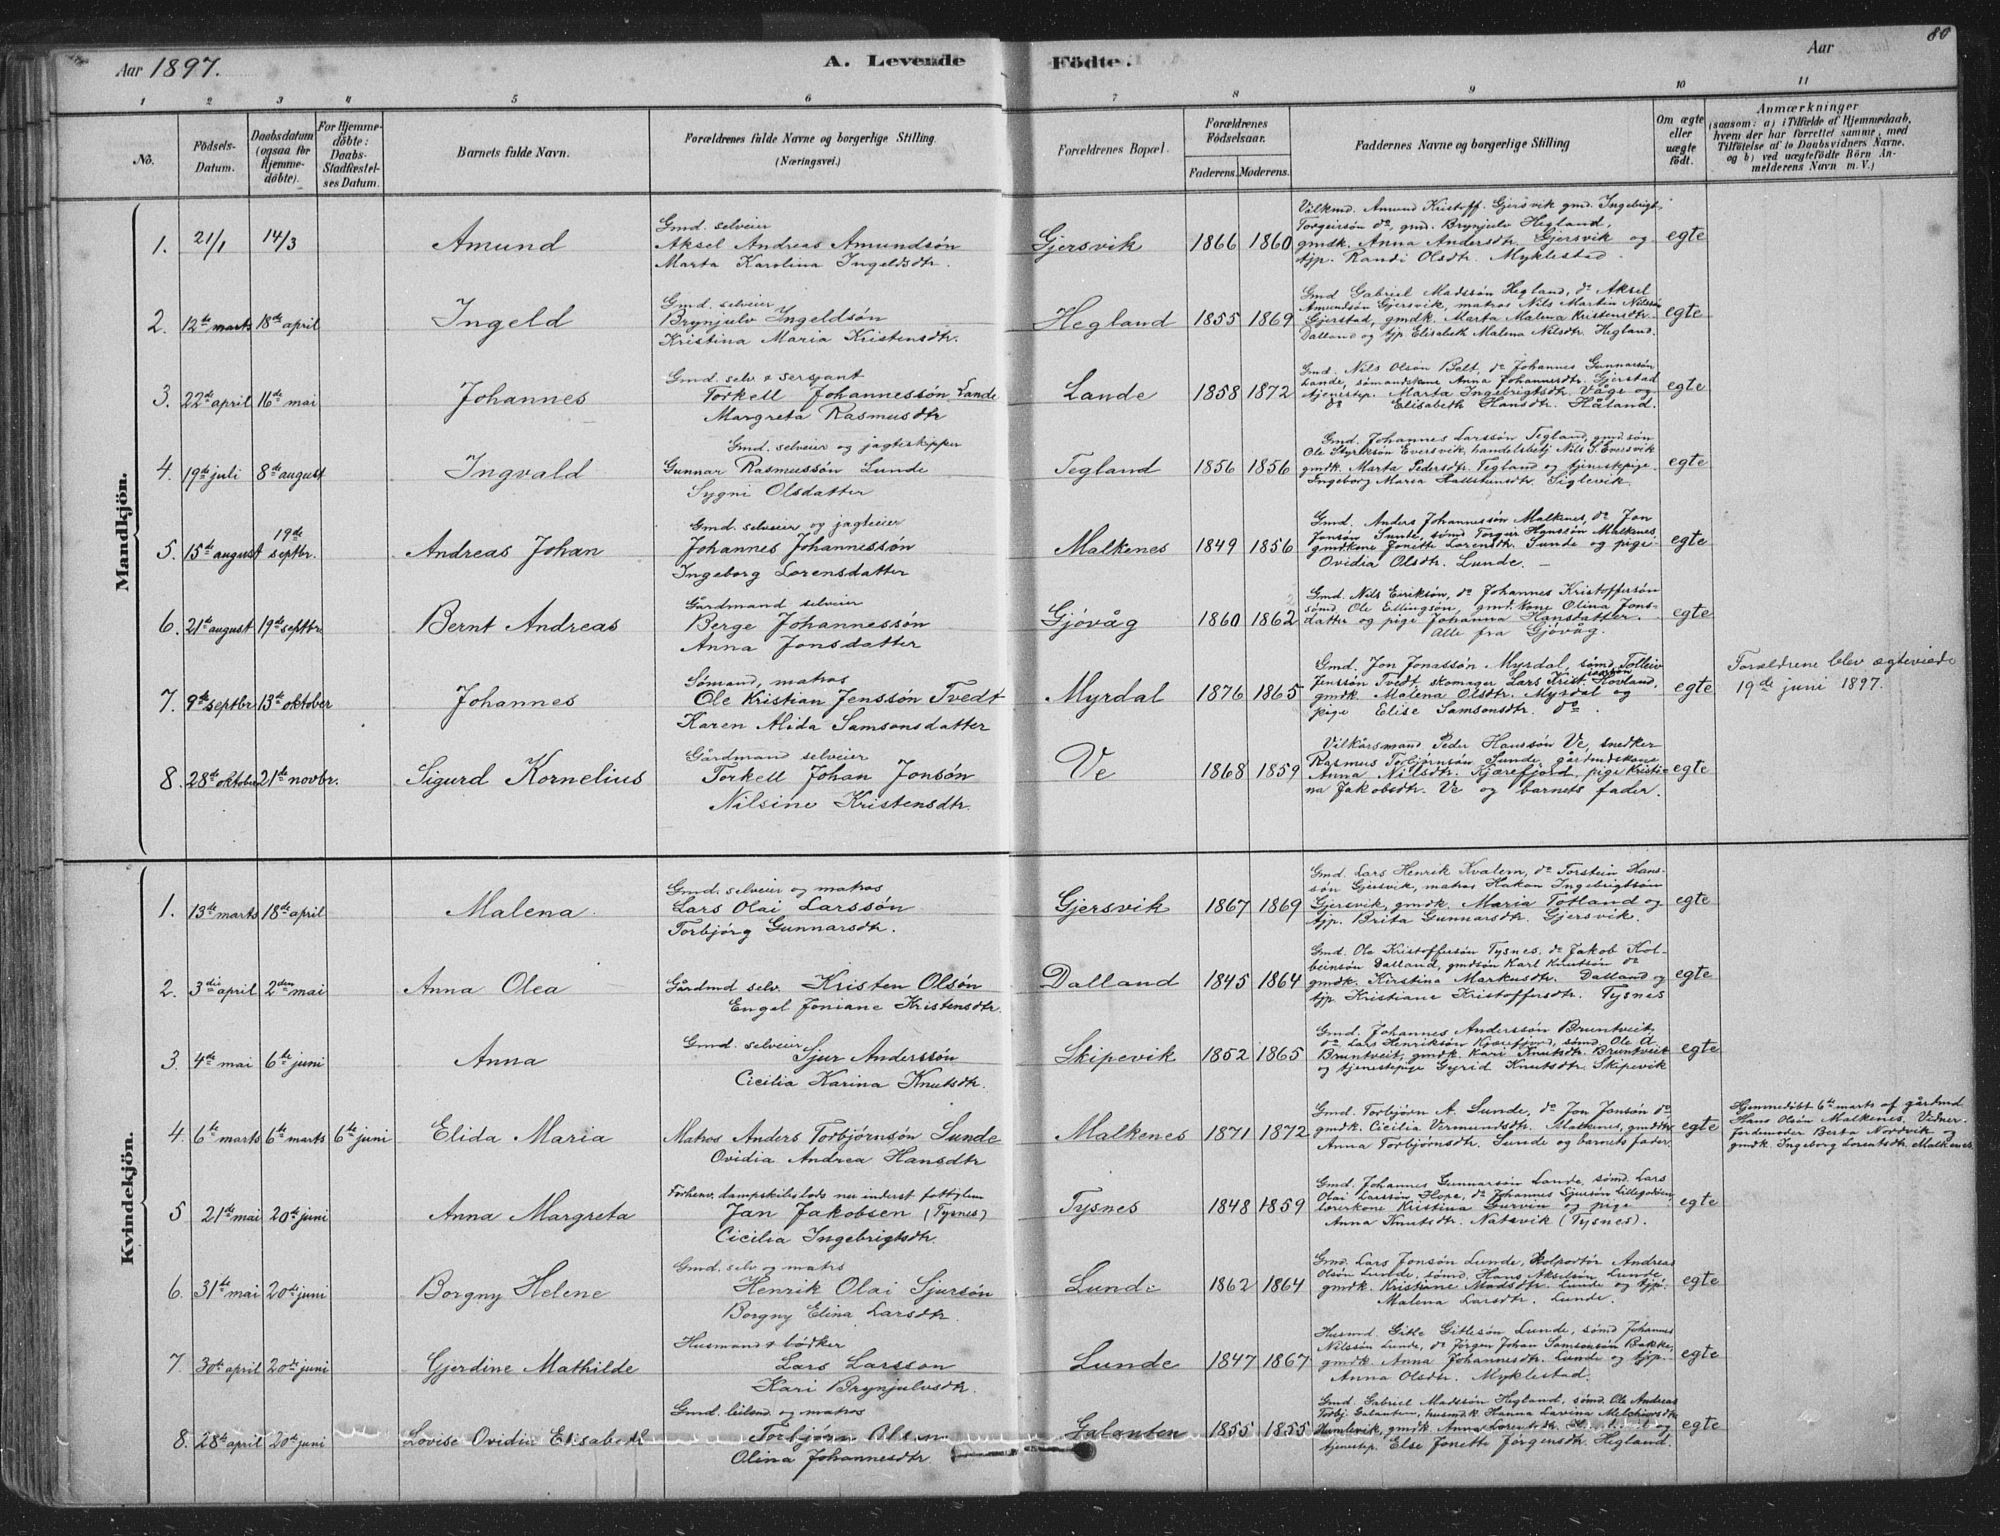 Aar 1897.
A. Levende Födte.
Aar
80
1 2 3 4 5 6 7 8 9 10 11
No.
Födsels-
Datum.
Daabsdatum
(ogsaa for
Hjemme-
döbte).
For Hjemme-
döbte:
Daabs-
Stadfæstel-
ses Datum.
Barnets fulde Navn.
Forældrenes fulde Navne og borgerlige Stilling.
(Næringsvei.)
Forældrenes Bopæl.
Forældrenes
Födselsaar.
Faderens. Moderens.
Faddernes Navne og borgerlige Stilling
Om ægte
eller
uægte
födt.
Anmærkninger
(saasom: a) i Tilfælde af Hjemmedaab,
hvem der har forrettet samme, med
Tilföielse af to Daabsvidners Navne.
og b) ved uægtefödte Börn An-
melderens Navn m. V.)
Mandkjön.
1. 21/1 14/3 Amund
Gmd. selveier
Aksel Andreas Amundsön
Marta Karolina Ingeldsdtr.
Gjersvik 1866 1860
Vilkmd. Amund Kristoff. Gjersvik gmd. Ingebrigt
Torgeirsön do, gmd. Brynjulv Hegland,
gmdk. Anna Andersdtr. Gjersvik og
tjp. Randi Olsdtr. Myklestad.
egte
2. 12te marts 18de april Ingeld
Gmd. selveier
Brynjulv Ingeldsön
Kristina Maria Kristensdtr.
Hegland 1855 1869
Gmd Gabriel Madssön Hegland, do Aksel
Amundsön Gjersvik, matros Nils Martin Nilssön
Gjerstad, gmdk. Marta Malena Kristensdtr.
Dalland og tjp Elisabeth Malena Nilsdtr. Hegland.
egte
3. 22de april 16de mai Johannes
Gmd. selv & sersjant
Torkell Johannessön Lande
Margreta Rasmusdtr
Lande 1858 1872
Gmd. Nils Olsön Belt, do Johannes Gunnarsön
Lande, sömandskone Anna Johannesdtr. Gjerstad
tjenestep. Marta Ingebrigtsdtr. Våge og
do Elisabeth Hansdtr. Håland.
egte
4. 19de juli 8de august Ingvald
Gmd. selveier og jagteskipper
Gunnar Rasmussön Lunde
Sygni Olsdatter
Tegland 1856 1856
Gmd. Johannes Larssön Tegland, gmdsön
Ole Styrksön Eversvik, handelsbetj Nils S. Eversvik
gmdk. Marta Pedersdtr. Tegland og tjenestepige
Ingeborg Maria Hallstensdtr. Siglevik.
egte
5. 15de august 19de septbr. Andreas Johan
Gmd. selveier og jagteeier
Johannes Johannessön
Ingeborg Lorensdatter
Malkenes 1849 1856
Gmd. Anders Johannessön Malkenes, do Jon
Jonsön Sunde, sömd Torgeir Hanssön Malkenes,
gmdkone Jonette Lorensdtr. Sunde og pige
Ovidia Olsdtr. Lunde. –
egte
6. 21de august 19de septbr Bernt Andreas
Gårdmand selveier
Berge Johannessön
Anna Jonsdatter
Gjövåg 1860 1862
Gmd. Nils Eiriksön, do Johannes Kristoffersön
sömd. Ole Ellingsön, gmd.kone Olina Jons-
datter og pige Johanna Hansdatter.
Alle fra Gjövåg.
egte
7. 9de septbr 13de oktober Johannes
Sömand, matros
Ole Kristian Jenssön Tvedt
Karen Alida Samsonsdatter
Myrdal 1876 1865
Gmd. Jon Jonassön Myrdal, sömd Tolleiv
Jenssön Tvedt, skomager Lars Kristianssön Hovland,
gmdk. Malena Olsdtr. Myrdal og
pige Elise Samsonsdtr. do.
egte
Forældrene blev ægteviede
19de juni 1897.
8. 28de oktober 21de novbr. Sigurd Kornelius
Gårdmand selveier
Torkell Johan Jonsön
Nilsine Kristensdtr.
Ve 1868 1859
Vilkårsmand Peder Hanssön Ve, snedker
Rasmus Torbjörnsön Sunde gårdmdskone
Anna Nilsdtr. Kjærefjord, pige Kristi-
na Jakobsdtr. Ve og barnets fader.
egte
Kvindekjön.
1. 13de marts 18de april Malena
Gmd. selveier og matros
Lars Olai Larssön
Torbjörg Gunnarsdtr.
Gjersvik 1867 1869
Gmd. Lars Henrik Kvalem, do Torstein Hans-
sön Gjersvik, matros Hakon Ingebrigtsön
Gjersvik, gmdk. Maria Totland og
tjp. Brita Gunnarsdtr. Gjersvik.
egte
2. 3die april 2den mai Anna Olea
Gårdmd selv. Kristen Olsön
Engel Joniane Kristensdtr.
Dalland 1845 1864
Gmd. Ole Kristoffersön Tysnes, do Jakob Kol-
beinsön Dalland, gmdsön Karl Knutsön do
gmdk. Kirstina Markusdtr. Dalland og
tjp Kristiane Kristoffersdtr. Tysnes
egte
3. 4de mai 6te juni Anna
Gmd. selveier
Sjur Anderssön
Cicilia Karina Knutsdtr.
Skipevik 1852 1865
Gmd. Johannes Anderssön Bruntveit,
do Lars Henriksön Kjærefjord, sömd Ole A.
Bruntveit, gmdk. Kari Knutsdtr. Bruntveit
og tjenestepige Gyrid Knutsdtr. Skipevik
egte
4. 6te marts 6te marts 6te juni Elida Maria
Matros Anders Torbjörnsön Sunde
Ovidia Andrea Hansdtr
Malkenes 1871 1872
Gmd. Torbjörn A. Sunde, do Jon Jonsön do
gmdk. Cicilia Vermundsdtr. Malkenes, gmddtr
Anna Torbjörnsdtr. Sunde og barnets fader.
egte
Hjemmedöbt 6te marts af gårdmd
Hans Olsön Malkenes. Vidner:
Jordemoder Berta Nordvik og
gmdk. Ingeborg Lorentsdtr. Malkenes.
5 21de mai 20de juni Anna Margreta
Forhenv. dampskibslods nu inderst fattiglem
Jan Jakobsen (Tysnes)
Cicilia Ingebrigtsdtr.
Tysnes 1848 1859
Gmd. Johannes Gunnarson Lande, sömd. Lars
Olai Larssön Hope, do Johannes Sjursön Lillegodöen,
Lærerkone Kristina Gurvin og pige
Anna Knutsdtr. Natavik (Tysnes).
egte
6. 31te mai 20de juni Borgny Helene
Gmd. selv og matrs
Henrik Olai Sjursön
Borgny Elina Larsdtr.
Lunde 1862 1864
Gmd. Lars Jonsön Lunde, kolportör Andreas
Olsön Lunde, sömd. Hans Akselsön Lunde
gmdk. Kristiane Madsdtr. Lunde og tjp.
Malena Larsdtr. Lunde.
egte
7. 30te april 20de juni Gjerdine Mathilde
Husmand & bödker
Lars Larsson
Kari Brynjulvsdtr.
Lunde 1847 1867
Husmd. Gitle Gitlesön Lunde, sömd Johannes
Nilssön Lunde, do Jörgen Johan Samsonsön Bakke,
gmdk. Anna Johannesdtr. Lunde og tjp.
Anna Olsdtr. Myklestad.
egte
8. 28de april 20de juni Lovise Ovidia Elisabeth
Gmd. leilend. og matros
Torbjörn Olsen
Olina Johannesdtr
Galanten 1855 1855
Gmd. Gabriel Madssön Hegland, sömd. Ole Andreas
Torbj. Galanten, husmdk. Hanna Lavina Melchiorsdtr
Humlevik, gmdk. Anna Lorentsdtr.
tjenestep. Else Jonette Jörgensdtr. Hegland.
egte